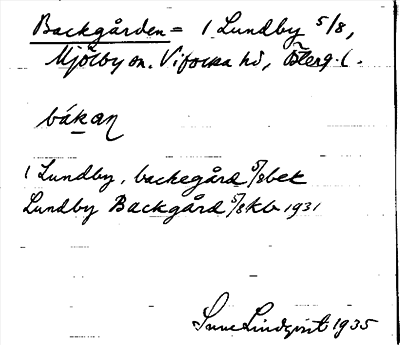 Backgården = 1 Lundby 5/8,
Mjölby sn. Vifolka hd, Österg. l.
bákan
1 Lundby, backegård 5/8 bek
Lundby Backgård 5/8 kb 1931
Sune Lindqvist 1935